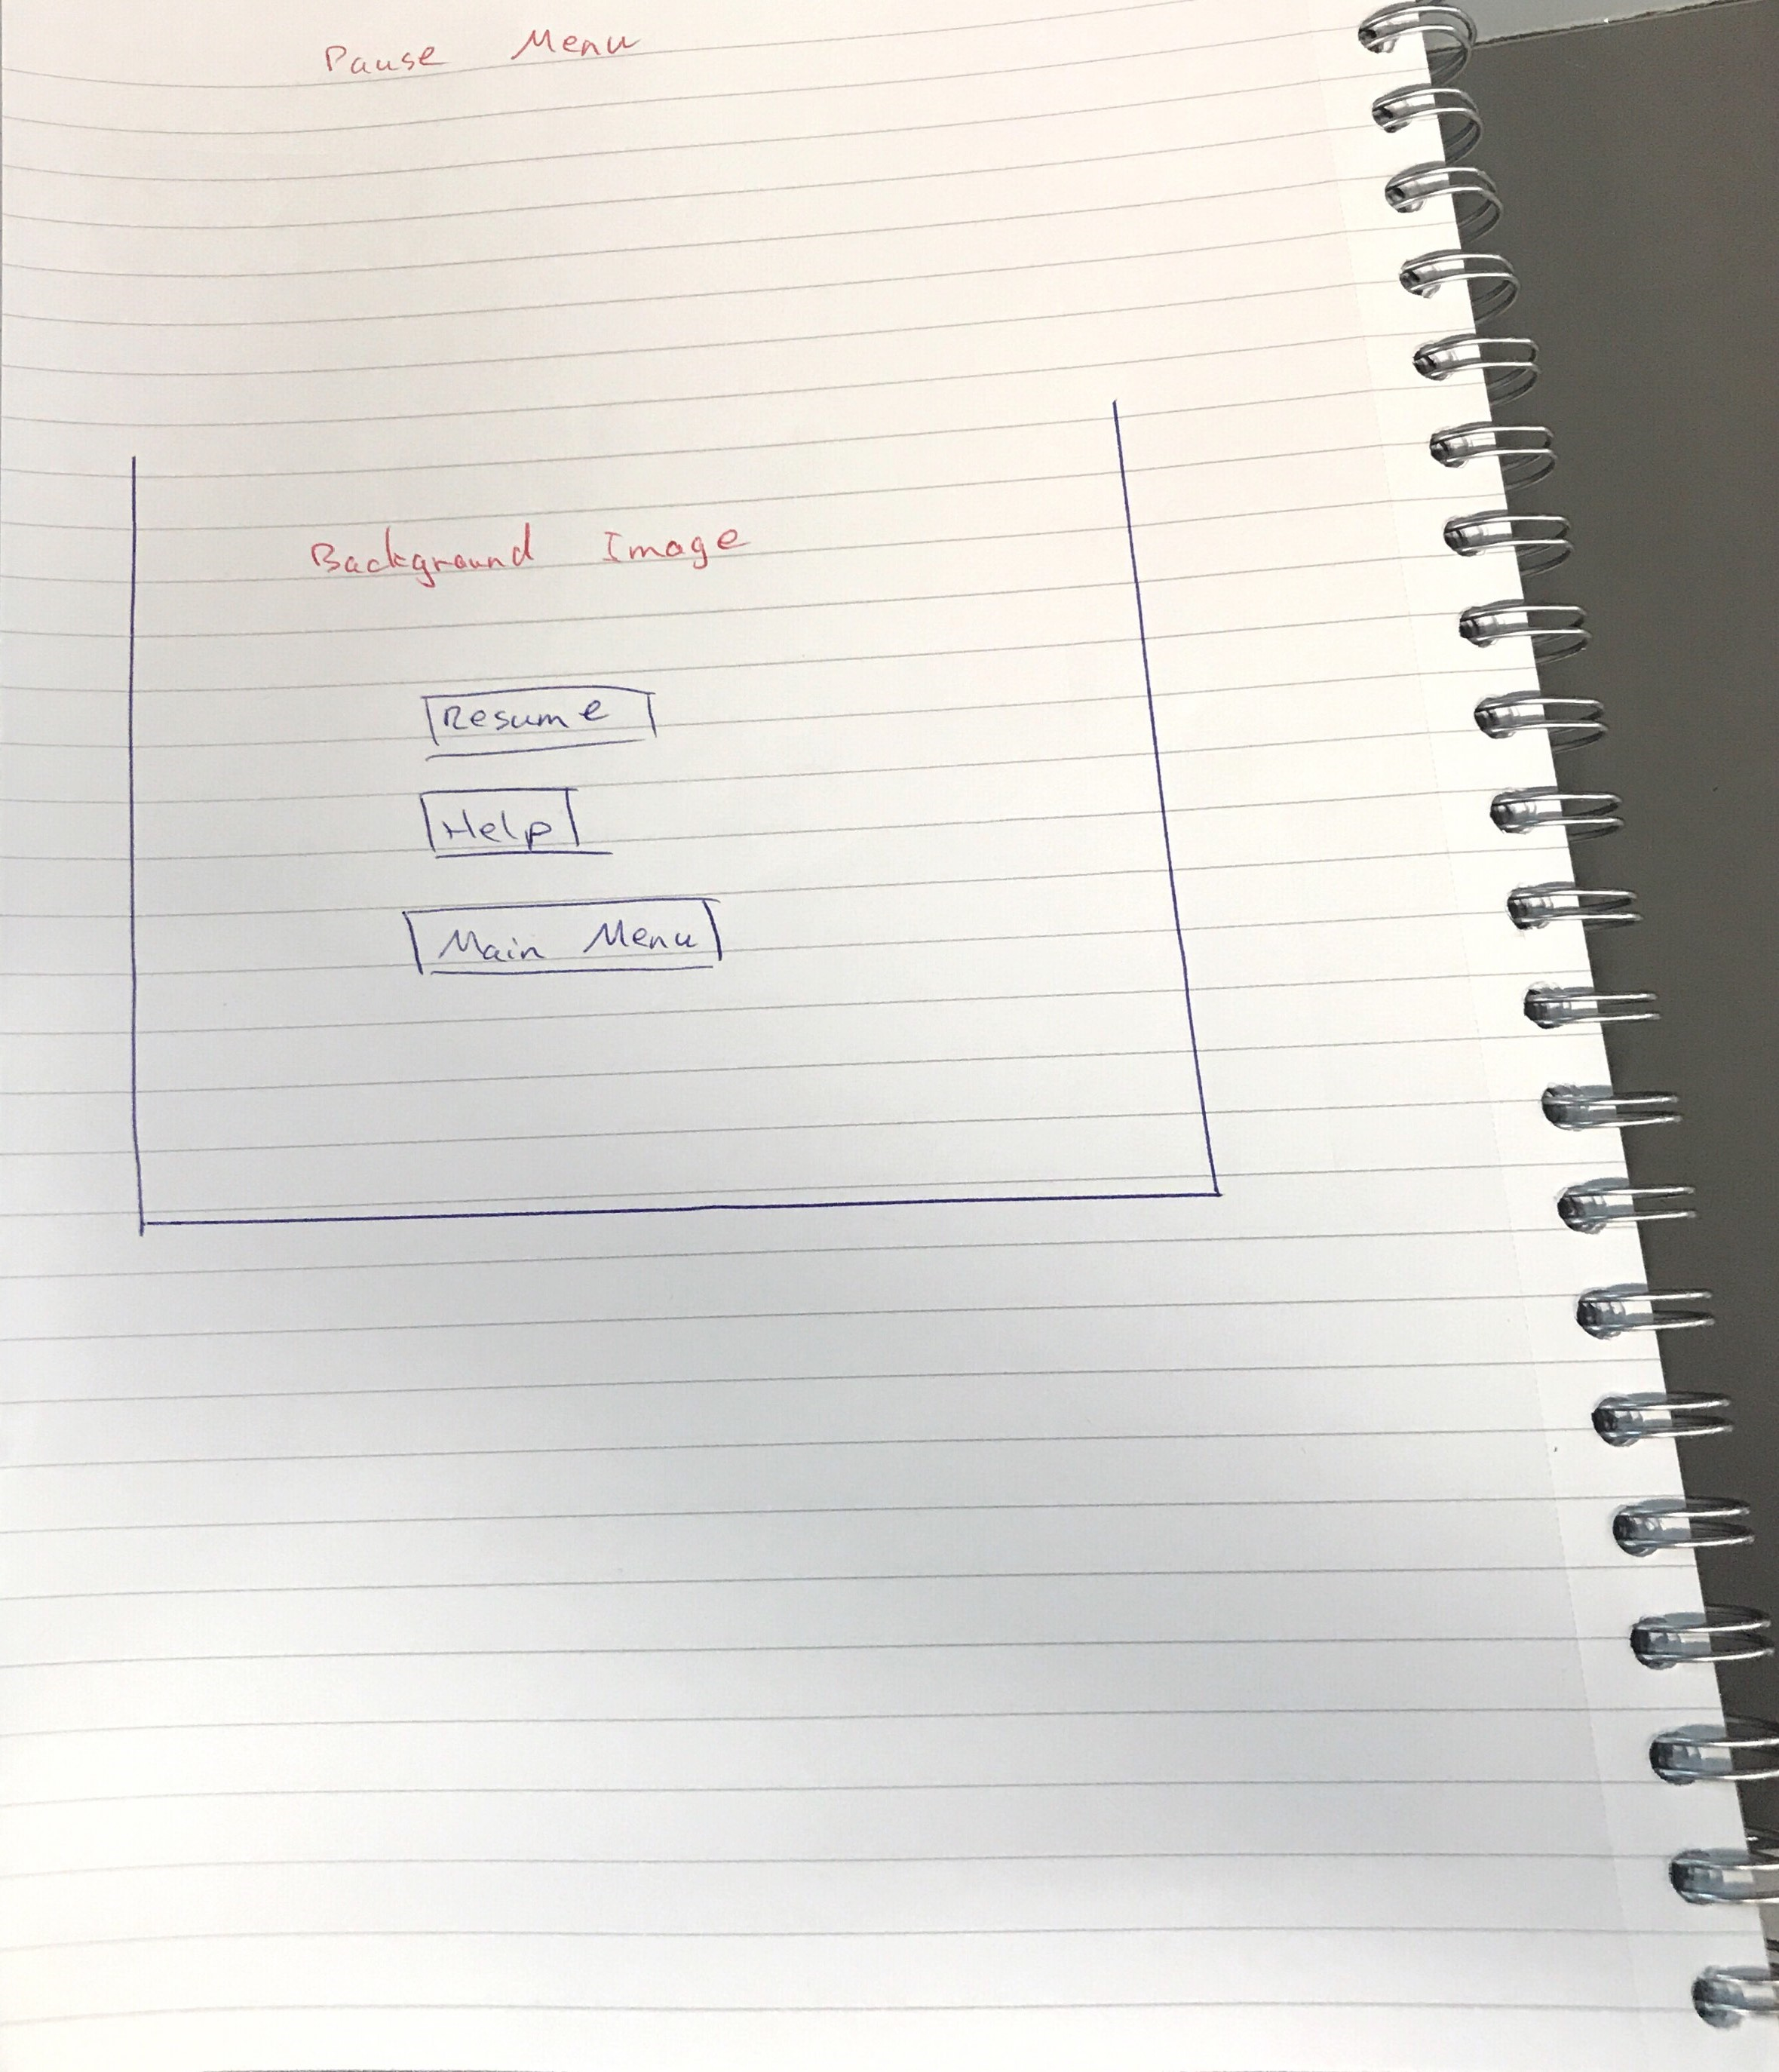 Pause Menu
Background Image
Resume
Help
Main Menu